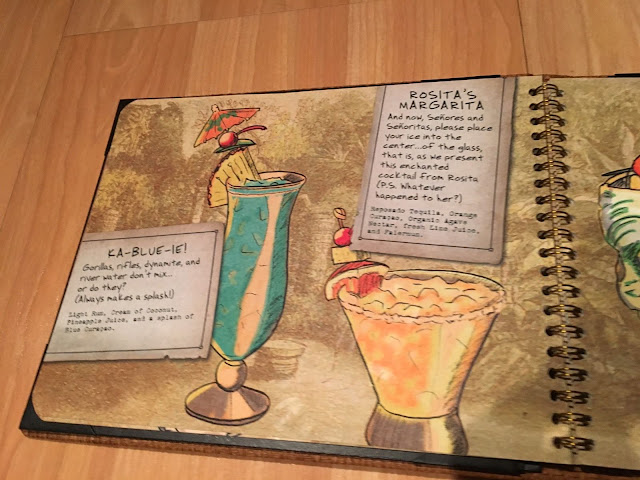 KA-BLUE-IE!
Gorillas, rifles, dynamite, and
river water don't mix...
or do they?
(Always makes a splash!)
Light Rum, Cream of Coconut,
Pineapple Juice, and a splash of
Blue Curaçao.
ROSITA'S
MARGARITA
And now, Señores and
Señoritas, please place
your ice into the
center...of the glass,
that is, as we present
this enchanted
cocktail from Rosita
(P.S. Whatever
happened to her?)
Reposado Tequila, Orange
Curaçao, Organic Agave
Nectar, fresh Lime Juice,
and Falernum.